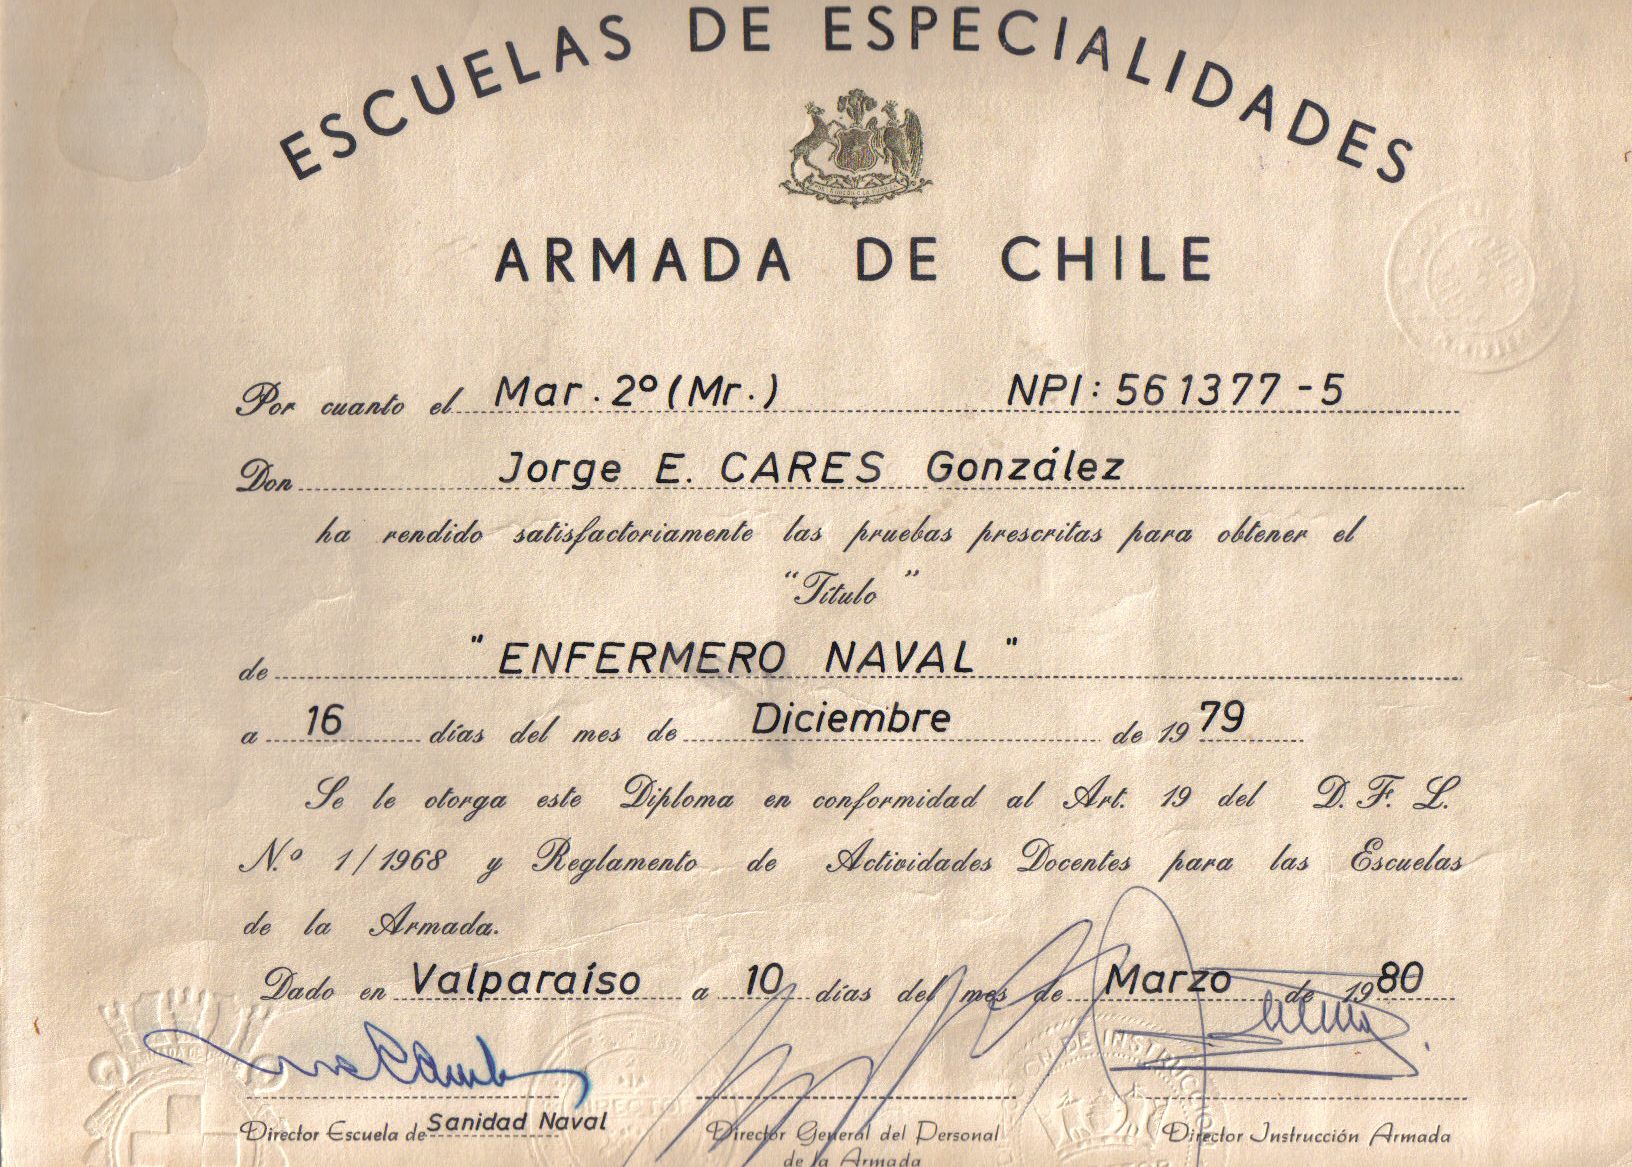 ESCUELAS DE ESPECIALIDADES
ARMADA DE CHILE
Por cuanto el Mar. 2º (Mr.) NPI: 561377-5
Don Jorge E. CARES González
ha rendido satisfactoriamente las pruebas prescritas para obtener el
"Título"
de "ENFERMERO NAVAL"
a 16 días del mes de Diciembre de 1979
Se le otorga este Diploma en conformidad al Art. 19 del D. F. L.
N.º 1/1968 y Reglamento de Actividades Docentes para las Escuelas
de la Armada.
Dado en Valparaíso a 10 días del mes de Marzo de 1980
Director Escuela de Sanidad Naval
Director General del Personal
de la Armada
Director Instrucción Armada